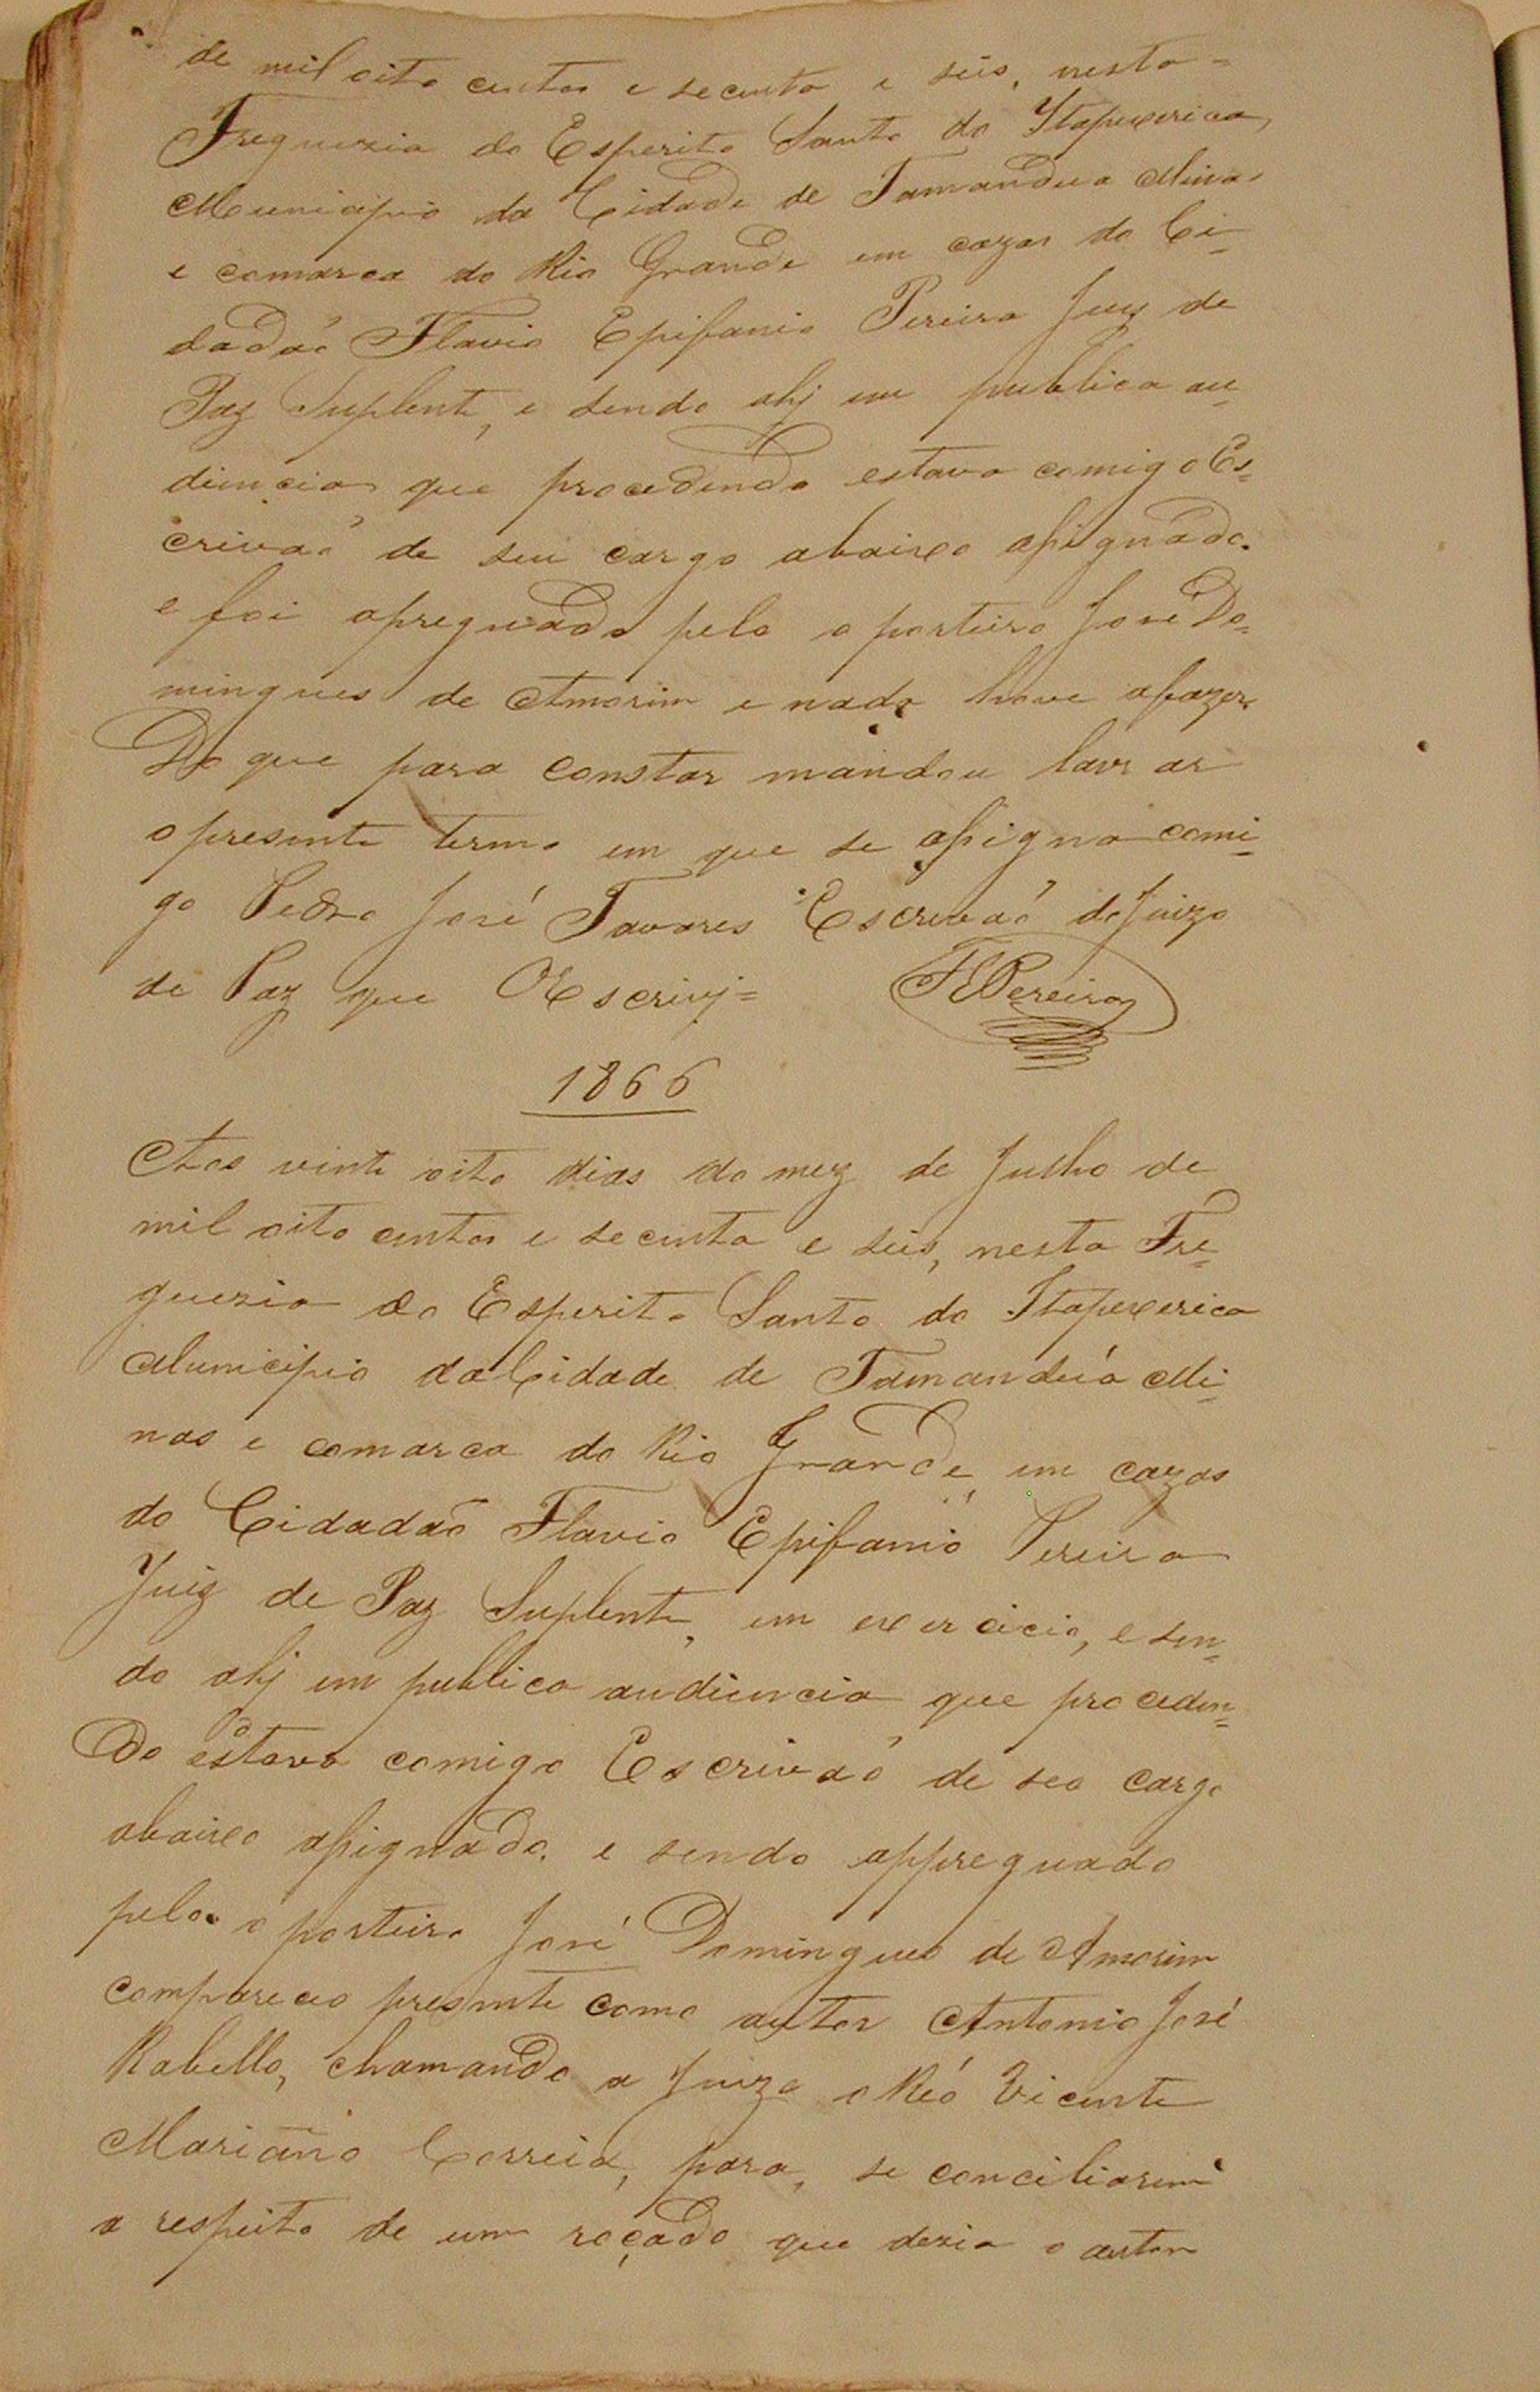 de mil oito centos e secenta e seis, nesta =
Freguezia do Esperito Santo do Itapecerica,
Municipio da Cidade de Tamandua Minas
e comarca do Rio Grande em cazas do Ci-
dadaõ Flavio Epifanio Pereira Juiz de
Paz Suplente, e sendo ahj em publica au-
diencia que procedendo estava comigo Es=
crivaõ de seu cargo abaixo assignado.
e foi apreguado pelo o porteiro José Do=
mingues de Amorim e nada hove afazer.
Do que para constar mandou lavrar
o presente termo em que se assigna comi-
go Pedro José Tavares Escrevaõ do Juizo
de Paz que OEscrivj=
FEPereira
1866
Aos vinte oito dias do mez de Julho de
mil oito centos e secenta e seis, nesta Fre-
guezia do Esperito Santo do Itapecerica
Municipio da Cidade de Tamanduá Mi-
nas e comarca do Rio Grande, em cazas
do Cidadaõ Flavio Epifanio Pereira
Juiz de Paz Suplente, em exercicio, e sen=
do ahj em publica audiencia que proceden=
do estava comigo Escrivaõ de seo cargo
abaixo assignado. e sendo appreguado
pelo o porteiro José Domingues de Amorim
compareceo presente como autor Antonio José
Rabello, chamando a Juizo o Reó Vicente
Mariano Correia, para, se conciliarem
a respeito de um roçado que dezia o autor